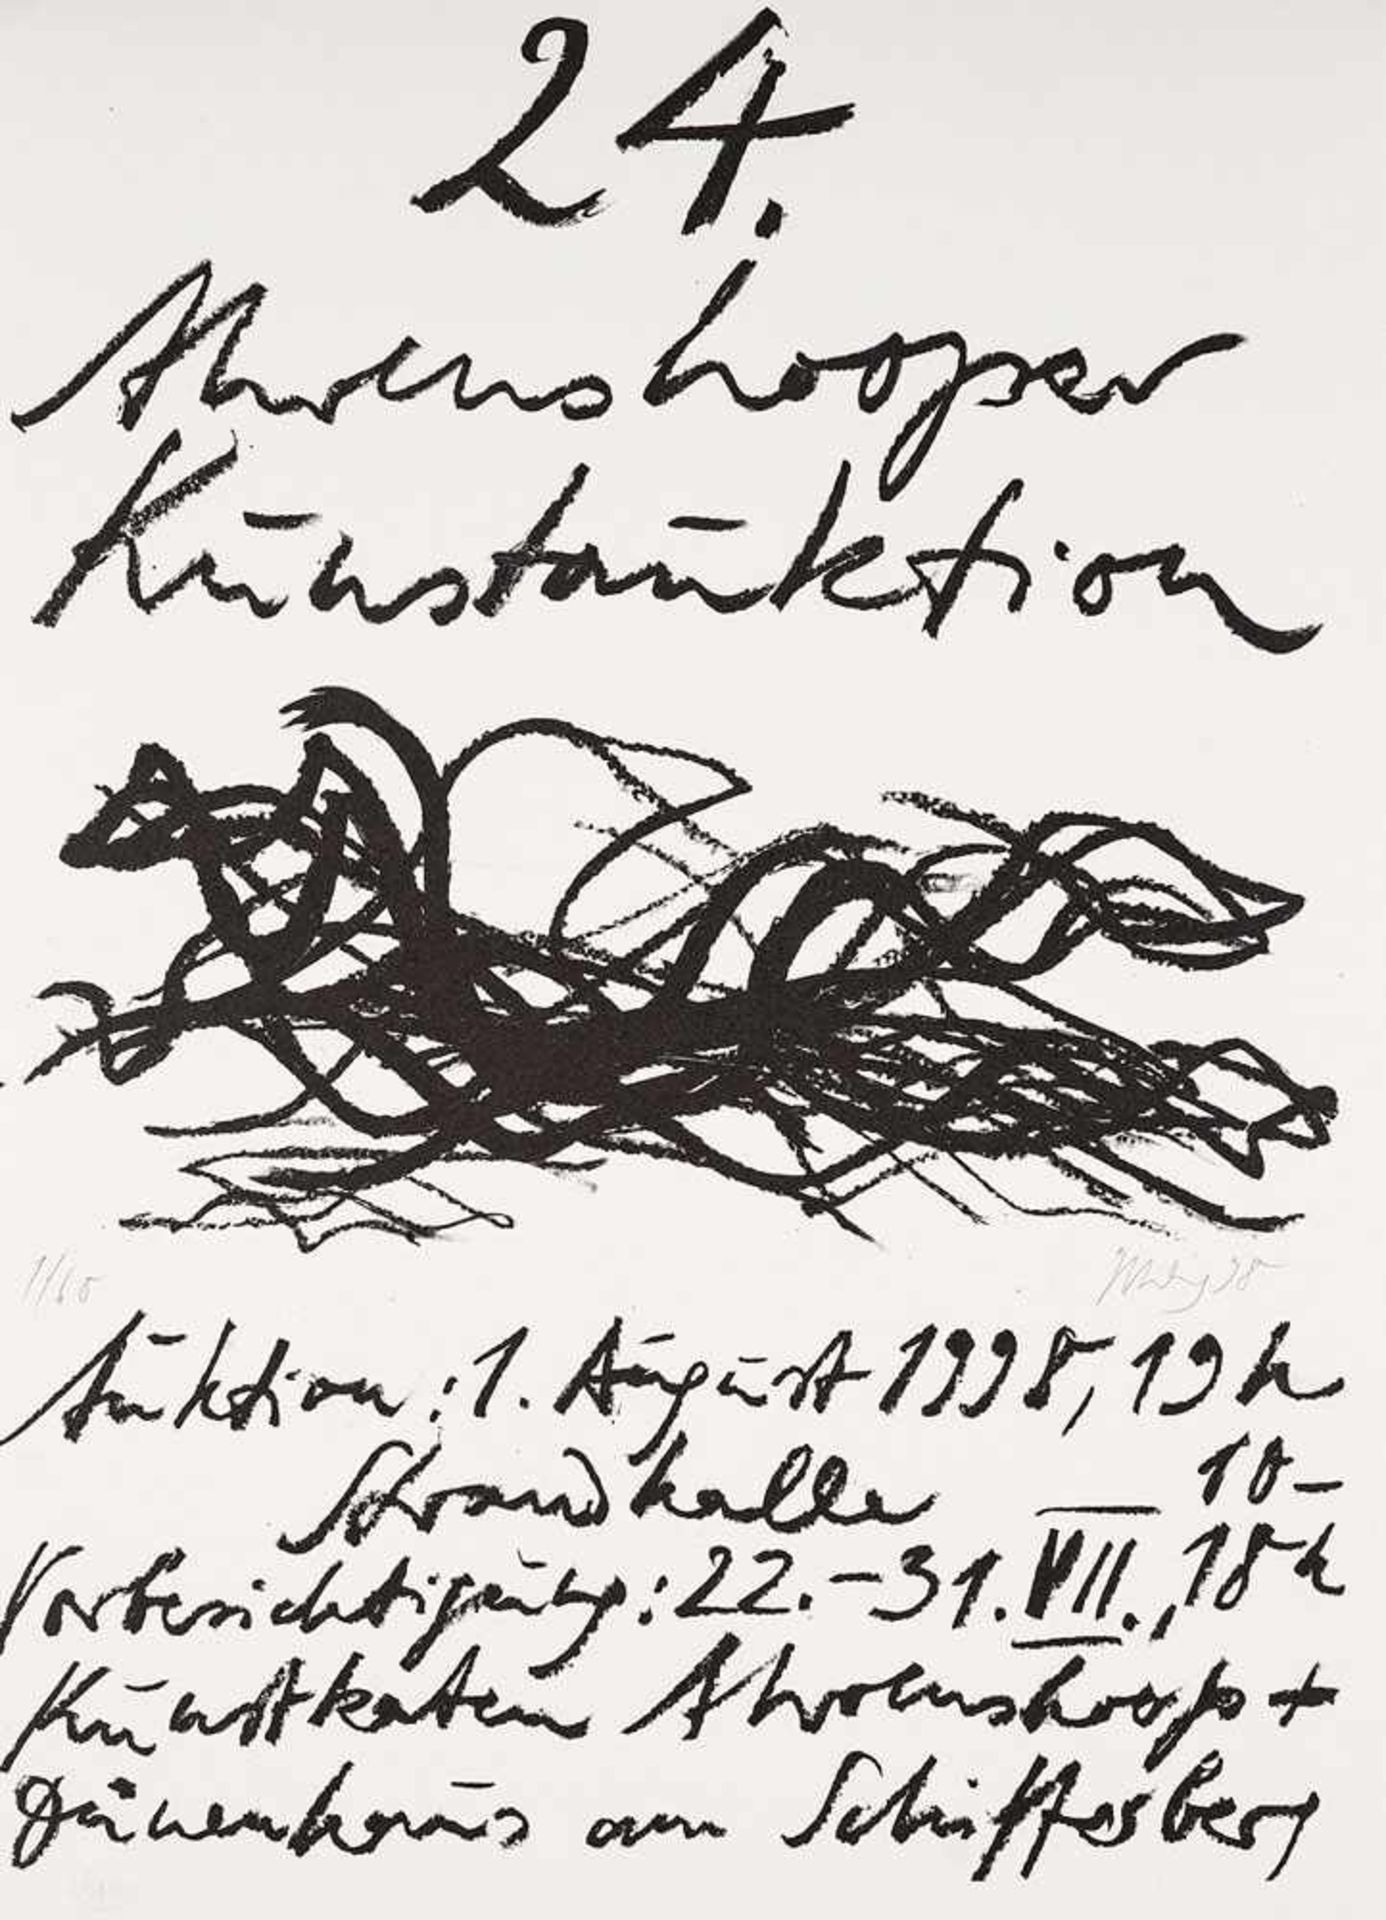 24.
Ahrenshooper
Kunstauktion
1/60
98
Auktion: 1. August 1998, 19 h
Strandhalle
10-
Vorbesichtigung: 22.-31. VII., 18 h
Kunstkaten Ahrenshoop +
Dünenhaus am Schifferberg